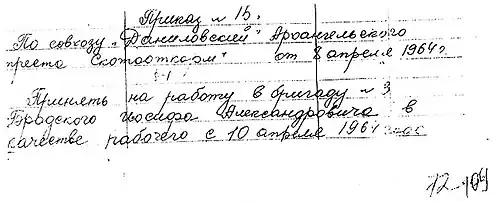 Приказ № 15.
По совхозу „Даниловский" Архангельского
треста Скотооткорм" от 8 апреля 1964 г.
§1
Принять на работу в бригаду № 3
Бродского Иосифа Александровича в
качестве рабочего с 10 апреля 1964